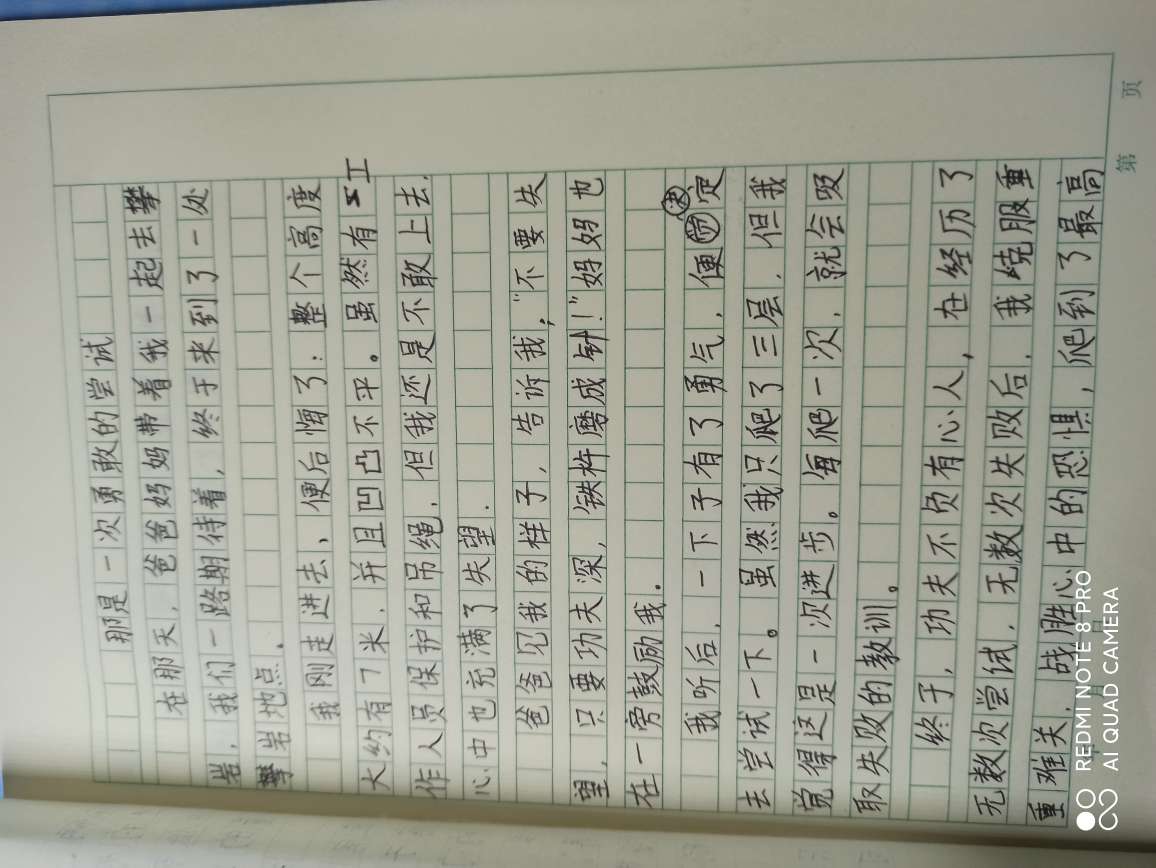 那是一次勇敢的尝试
在那天，爸爸妈妈带着我一起去攀
岩，我们一路期待着，终于来到了一处
攀岩地点。
我刚走进去，便后悔了：整个高度
大约有7米，并且凹凸不平。虽然有工
作人员保护和吊绳，但我还是不敢上去，
心中也充满了失望．
爸爸见我的样子，告诉我，"不要失
望，只要功夫深，铁杵磨成针！"妈妈也
在一旁鼓励我．
我听后，一下子有了勇气，便决定
去尝试一下。虽然我只爬了三层，但我
觉得这是一次进步。每爬一次，就会吸
取失败的教训。
终于，功夫不负有心人，在经历了
无数次尝试，无数次失败后，我克服重
重难关，战胜心中的恐惧，爬到了最高
第 页
REDMI NOTE 8 PRO
AI QUAD CAMERA